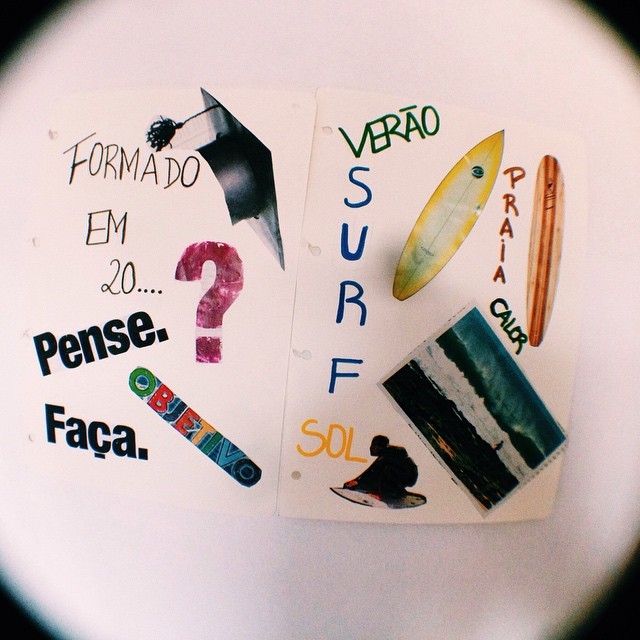 FORMADO
EM
20....
?
Pense.
OBJETIVO
Faça.
VERÃO
SURF
PRAIA
CALOR
SOL